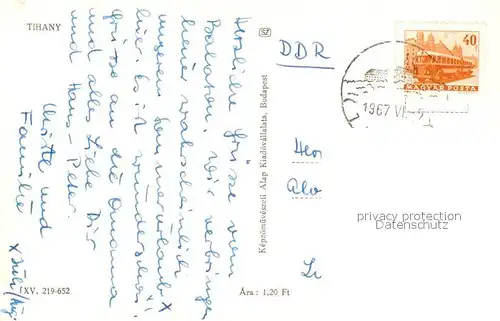 TIHANY
Herzliche Grüsse vom
Balaton. Wir verbringen
hier wahrscheinlich
unseren Sommerurlaub x
hier. Es ist wunderschön!
Grüsse an die Omama
und alles Liebe Dir
und Hans-Peter.
und
Familie
x Juli/Aug.
IXV. 219-652
Képzőművészeti Alap Kiadóvállalata, Budapest
Ára: 1,20 Ft
DDR
40
MAGYAR POSTA
1967 VI
privacy protection
Datenschutz